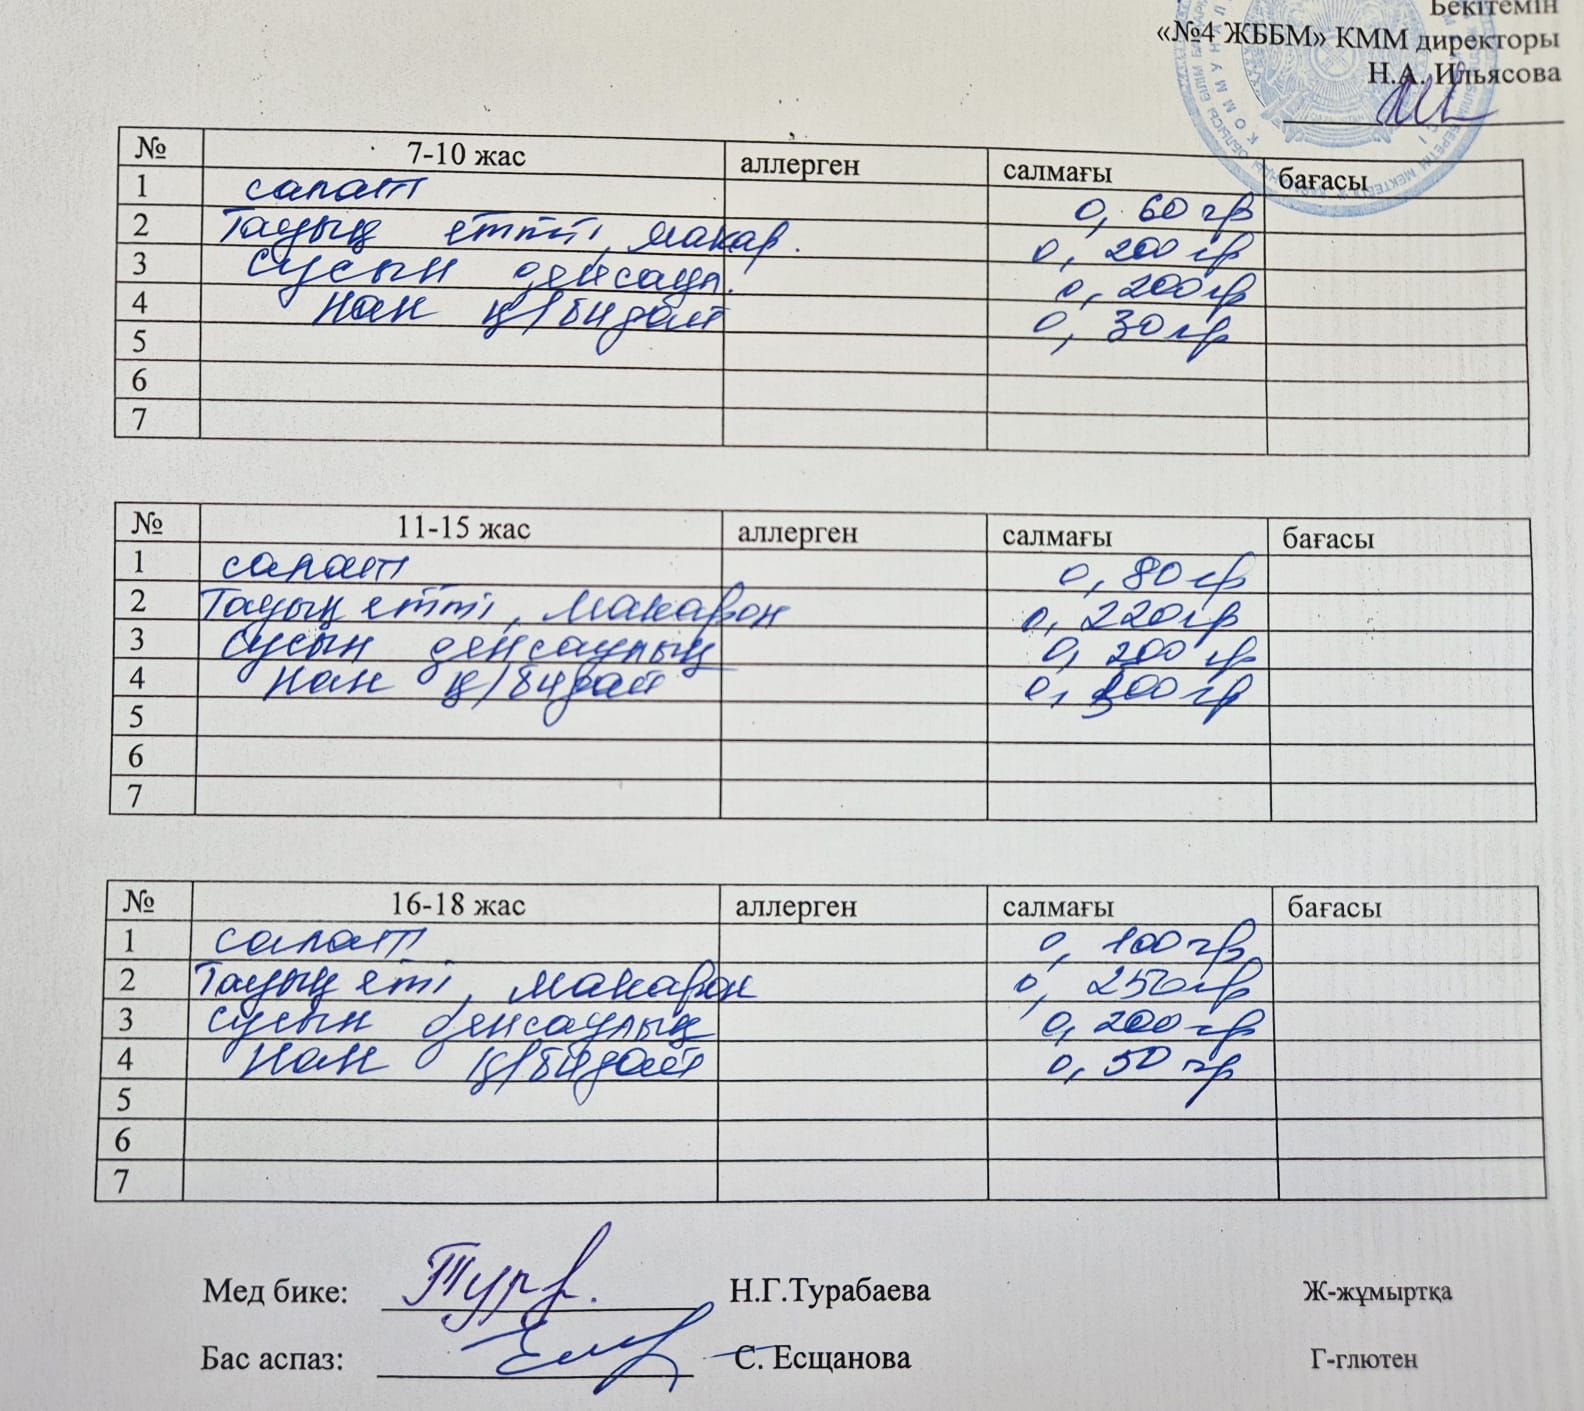 Бекітемін
«№4 ЖББМ» КММ директоры
Н.А. Ильясова
№ 7-10 жас аллерген салмағы бағасы
1 салат 0,60 гр
2 Тауық етті, макар. 0,200 гр
3 сусын денсаул. 0,200 гр
4 нан қ/бидай 0,30 гр
5
6
7
№ 11-15 жас аллерген салмағы бағасы
1 салат 0,80 гр
2 Тауық етті, макарон 0,220 гр
3 сусын денсаулық 0,200 гр
4 нан қ/бидай
5
6
7
№ 16-18 жас аллерген салмағы бағасы
1 салат 0,100 гр
2 Тауық еті, макарон 0,250 гр
3 сусын денсаулық 0,200 гр
4 нан қ/бидай 0,50 гр
5
6
7
Мед бике: Н.Г.Турабаева Ж-жұмыртқа
Бас аспаз: С. Есщанова Г-глютен